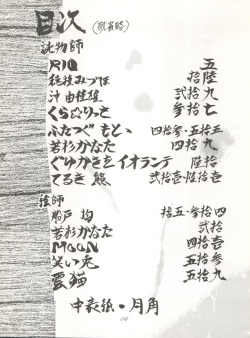 目次(敬省略)
詫物師
RIO 五
桂枝みづほ 拾陸
汁由佳雄 弐拾九
くら○りっさ 参拾七
ふたつぐもとい 四拾参・五拾五
若杉かなた 四拾九
ぐゆかきえイオランテ 陸拾
てるき熊 弐拾壱・陸拾壱
絵師
那戸均 拾五・参拾四
若杉かなた 弐拾
MOON 四拾壱
笑い兎 五拾参
雲猫 五拾九
中表紙・月角
04